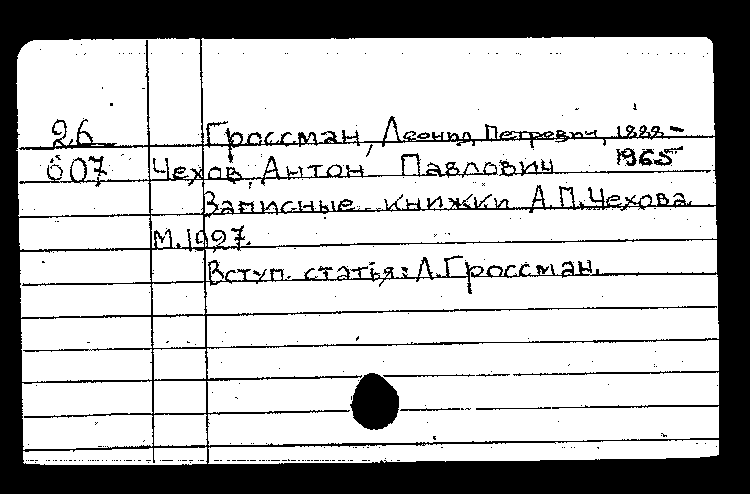 26 Гроссман, Леонид Петрович, 1888-
607 Чехов, Антон Павлович 1965
Записные книжки А.П.Чехова.
М.1927.
Вступ. статья: Л.Гроссман.